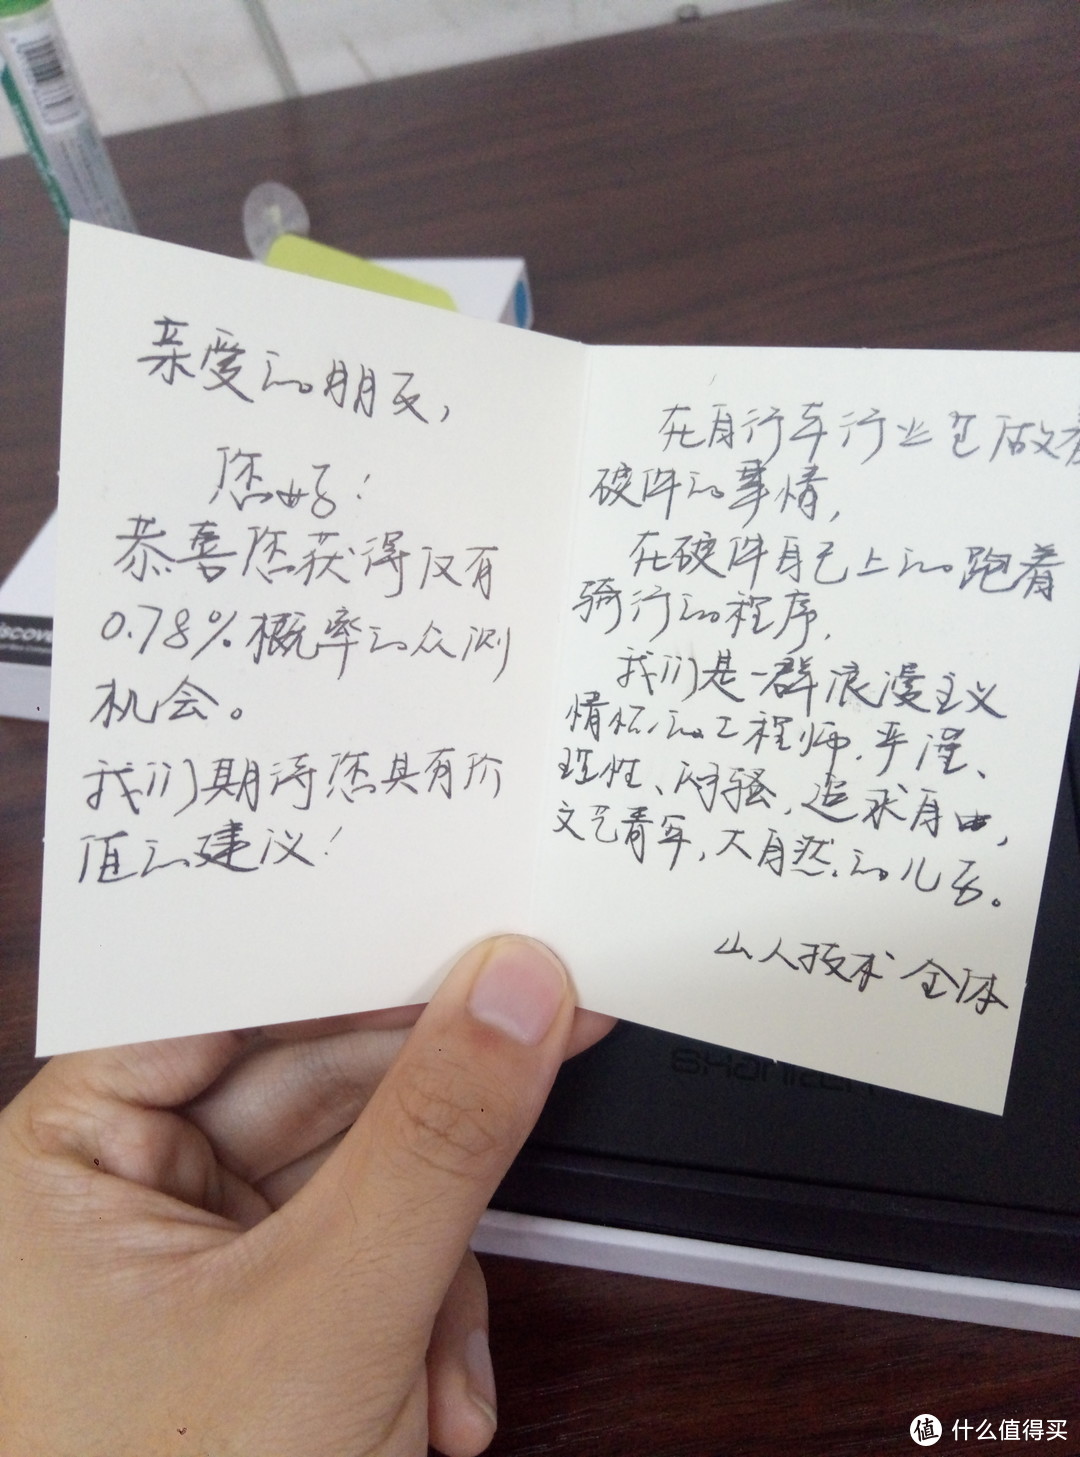 亲爱的朋友，
您好！
恭喜您获得仅有
0.78%概率的众测
机会。
我们期待您具有价
值的建议！
在自行车行业里做着
硬件的事情，
在硬件自己上的跑着
骑行的程序，
我们是一群浪漫主义
情怀的工程师，严谨、
理性、闷骚，追求自由，
文艺青年，大自然的儿子。
山人技术 全体
值 什么值得买